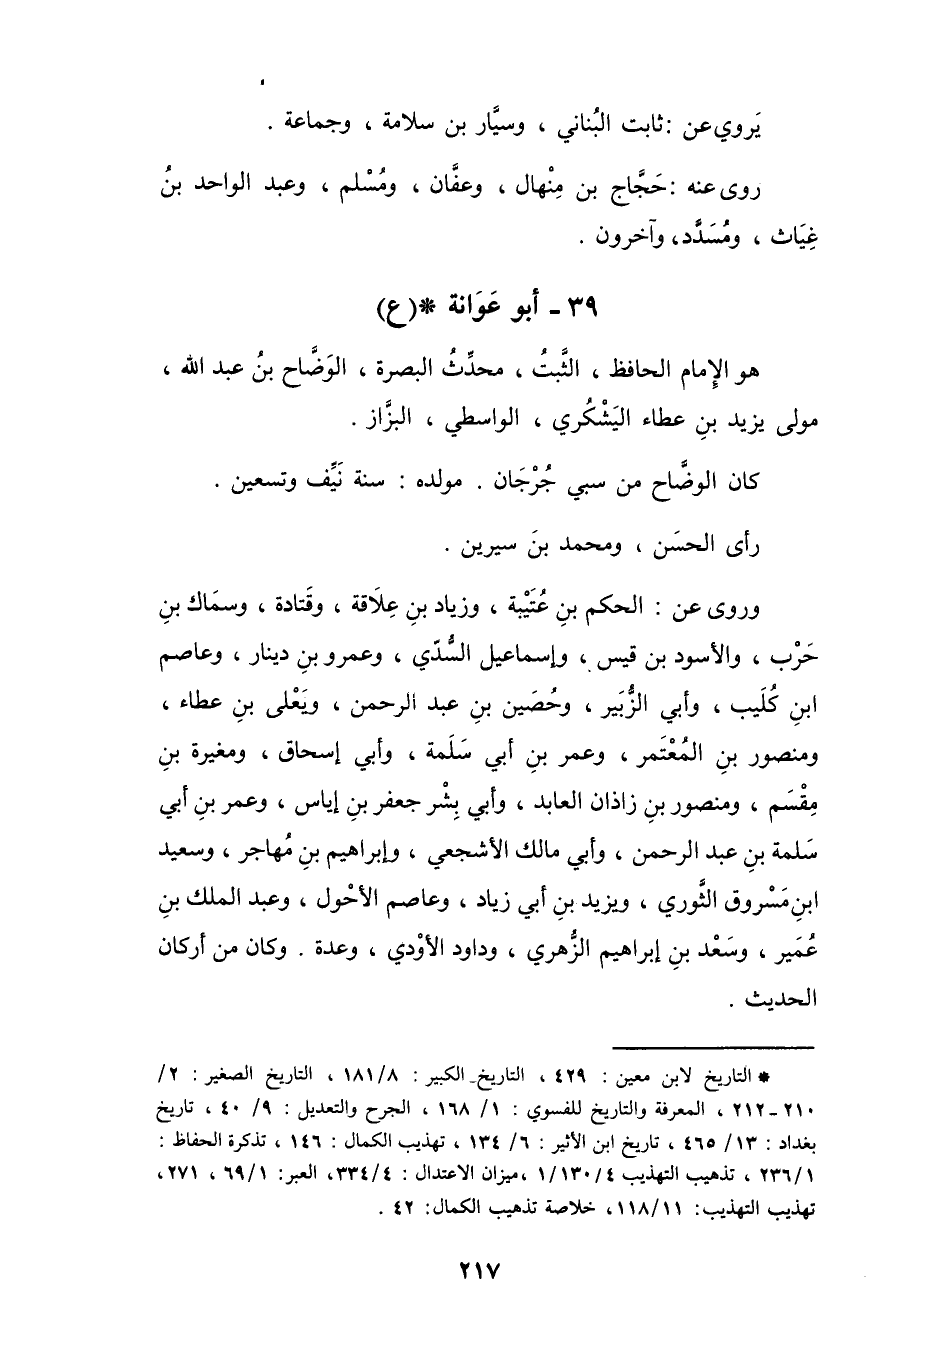 يَروي عن : ثابت البُناني ، وسيَّار بن سلامة ، وجماعة .
روى عنه : حَجَّاج بن مِنْهال ، وعفَّان ، ومُسْلم ، وعبد الواحد بنُ
غِيَاث ، ومُسَدَّد، وآخرون .
٣٩ - أبو عَوَانة *(ع)
هو الإِمام الحافظ ، الثَّبتُ ، محدِّثُ البصرة ، الوَضَّاح بنُ عبد الله ،
مولى يزيد بنِ عطاء اليَشْكُري ، الواسطي ، البزَّاز .
كان الوضَّاح من سبي جُرْجَان . مولده : سنة نَيِّف وتسعين .
رأى الحسَن ، ومحمد بنَ سيرين .
وروى عن : الحكم بنِ عُتَيْبة ، وزياد بنِ عِلَاقة ، وقَتادة ، وسمَاك بنِ
حَرْب ، والأسود بن قيس ، وإسماعيل السُّدّي ، وعمرو بنِ دينار ، وعاصم
ابنِ كُلَيب ، وأبي الزُّبَير ، وحُصَين بنِ عبد الرحمن ، ويَعْلى بنِ عطاء ،
ومنصور بنِ المُعْتَمر ، وعمر بنِ أبي سَلَمة ، وأبي إسحاق ، ومغيرة بنِ
مِقْسَم ، ومنصور بنِ زاذان العابد ، وأبي بِشْر جعفر بنِ إياس ، وعمر بنِ أبي
سَلمة بنِ عبد الرحمن ، وأبي مالك الأشجعي ، وإبراهيم بنِ مُهاجر ، وسعيد
ابنِ مَسْروق الثَّوري ، ويزيد بنِ أبي زياد ، وعاصم الأحْول ، وعبد الملك بنِ
عُمَير ، وسَعْد بنِ إبراهيم الزُّهري ، وداود الأوْدي ، وعدة . وكان من أركان
الحديث .
* التاريخ لابن معين : ٤٢٩ ، التاريخ الكبير : ١٨١/٨ ، التاريخ الصغير : ٢/
٢١٠ - ٢١٢ ، المعرفة والتاريخ للفسوي : ١/ ١٦٨ ، الجرح والتعديل : ٩/ ٤٠ ، تاريخ
بغداد : ١٣/ ٤٦٥ ، تاريخ ابن الأثير : ٦/ ١٣٤ ، تهذيب الكمال : ١٤٦ ، تذكرة الحفاظ :
٢٣٦/١ ، تذهيب التهذيب ١/١٣٠/٤ ، ميزان الاعتدال : ٣٣٤/٤، العبر: ٦٩/١ ، ٢٧١،
تهذيب التهذيب: ١١٨/١١، خلاصة تذهيب الكمال: ٤٢ .
٢١٧